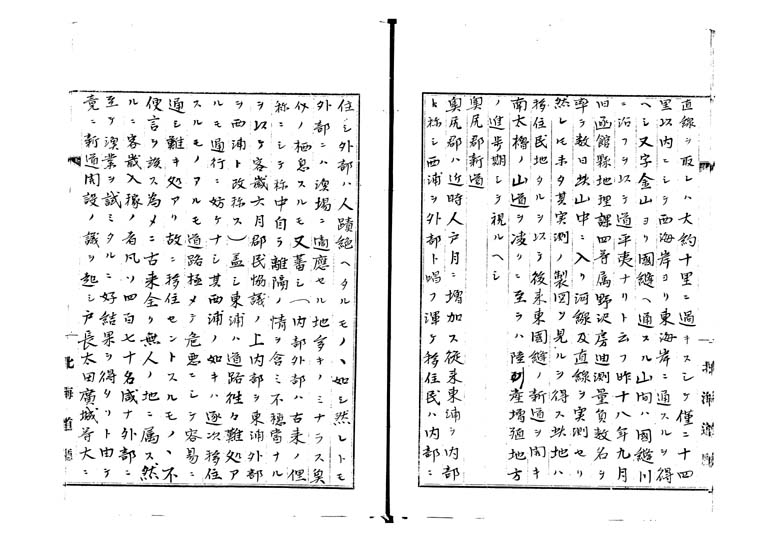 直線ヲ取レハ大約十里ニ過キスシテ僅ニ十四
里以内ニシテ西海岸ヨリ東海岸ニ通スルヲ得
ヘシ又字金山ヨリ國縫ヘ通スル山間ハ國縫川
ニ沿フヲ以テ道平夷ナリト云フ昨十八年九月
旧函館縣地理課四等属野沢房迪測量員数名ヲ
率ヒ数日此山中ニ入リ河線及直線ヲ実測セリ
然レモ未タ其実測ノ製図ヲ見ルヲ得ス此地ハ
移住民地タルヲ以テ後来東國縫ノ新道ヲ開キ
南太櫓ノ山道ヲ凌クニ至ラハ陸産増殖地方
ノ進歩期シテ視ルヘシ
奥尻郡新道
奥尻郡ハ近時人戸月ニ増加ス従来東浦ヲ内部
ト称シ西浦ヲ外部ト唱フ渾テ移住民ハ内部ニ
住シ外部ハ人蹟絶ヘタルモノヽ如シ然レトモ
外部ニハ漁場ニ適応セル地多キノミナラス奥
ノ栖息スルモ又蕃シ（内部外部ハ古来ノ俚
称ニシテ称中自ラ離隔ノ情ヲ含ミ不穏当ナル
ヲ以テ客歳六月郡民協議ノ上内部ヲ東浦外部
ヲ西浦ト改称ス）蓋シ東浦ハ道路往々難処ア
ルモ通行ニ妨ケナシ其西浦ノ如キハ逐次移住
スルモノアルモ道路極メテ危悪ニシテ容易ニ
通シ難キ処アリ故ニ移住セントスルモノヽ不
便言ヲ俟ス為メニ古来全ク無人ノ地ニ属ス然
ルニ客歳入稼ノ者凡ソ四百七十名咸ナ外部ニ
至テ漁業ヲ試ミタルニ好結果ヲ得タリト由テ
竟ニ新道開設ノ議ヲ起シ戸長太田廣城等大ニ
北海道